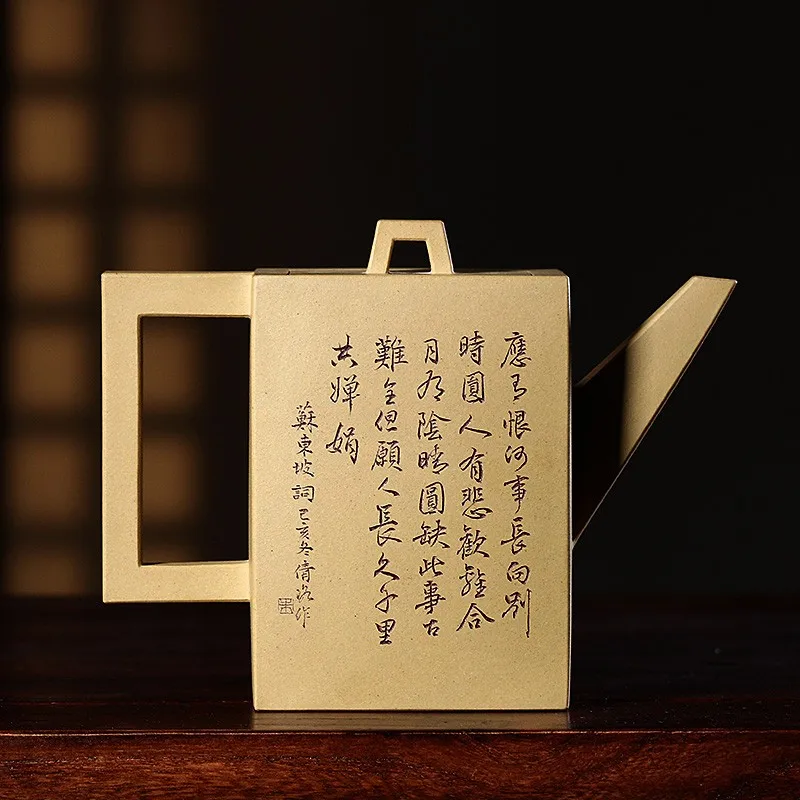 應有恨何事長向別
時圓人有悲歡離合
月有陰晴圓缺此事古
難全但願人長久千里
共嬋娟
蘇東坡詞己亥冬倩洛作